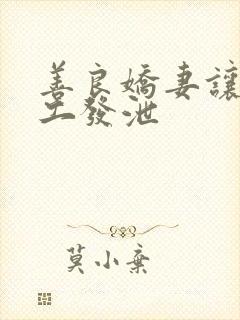 善良嬌妻讓
工發泄
莫小棄